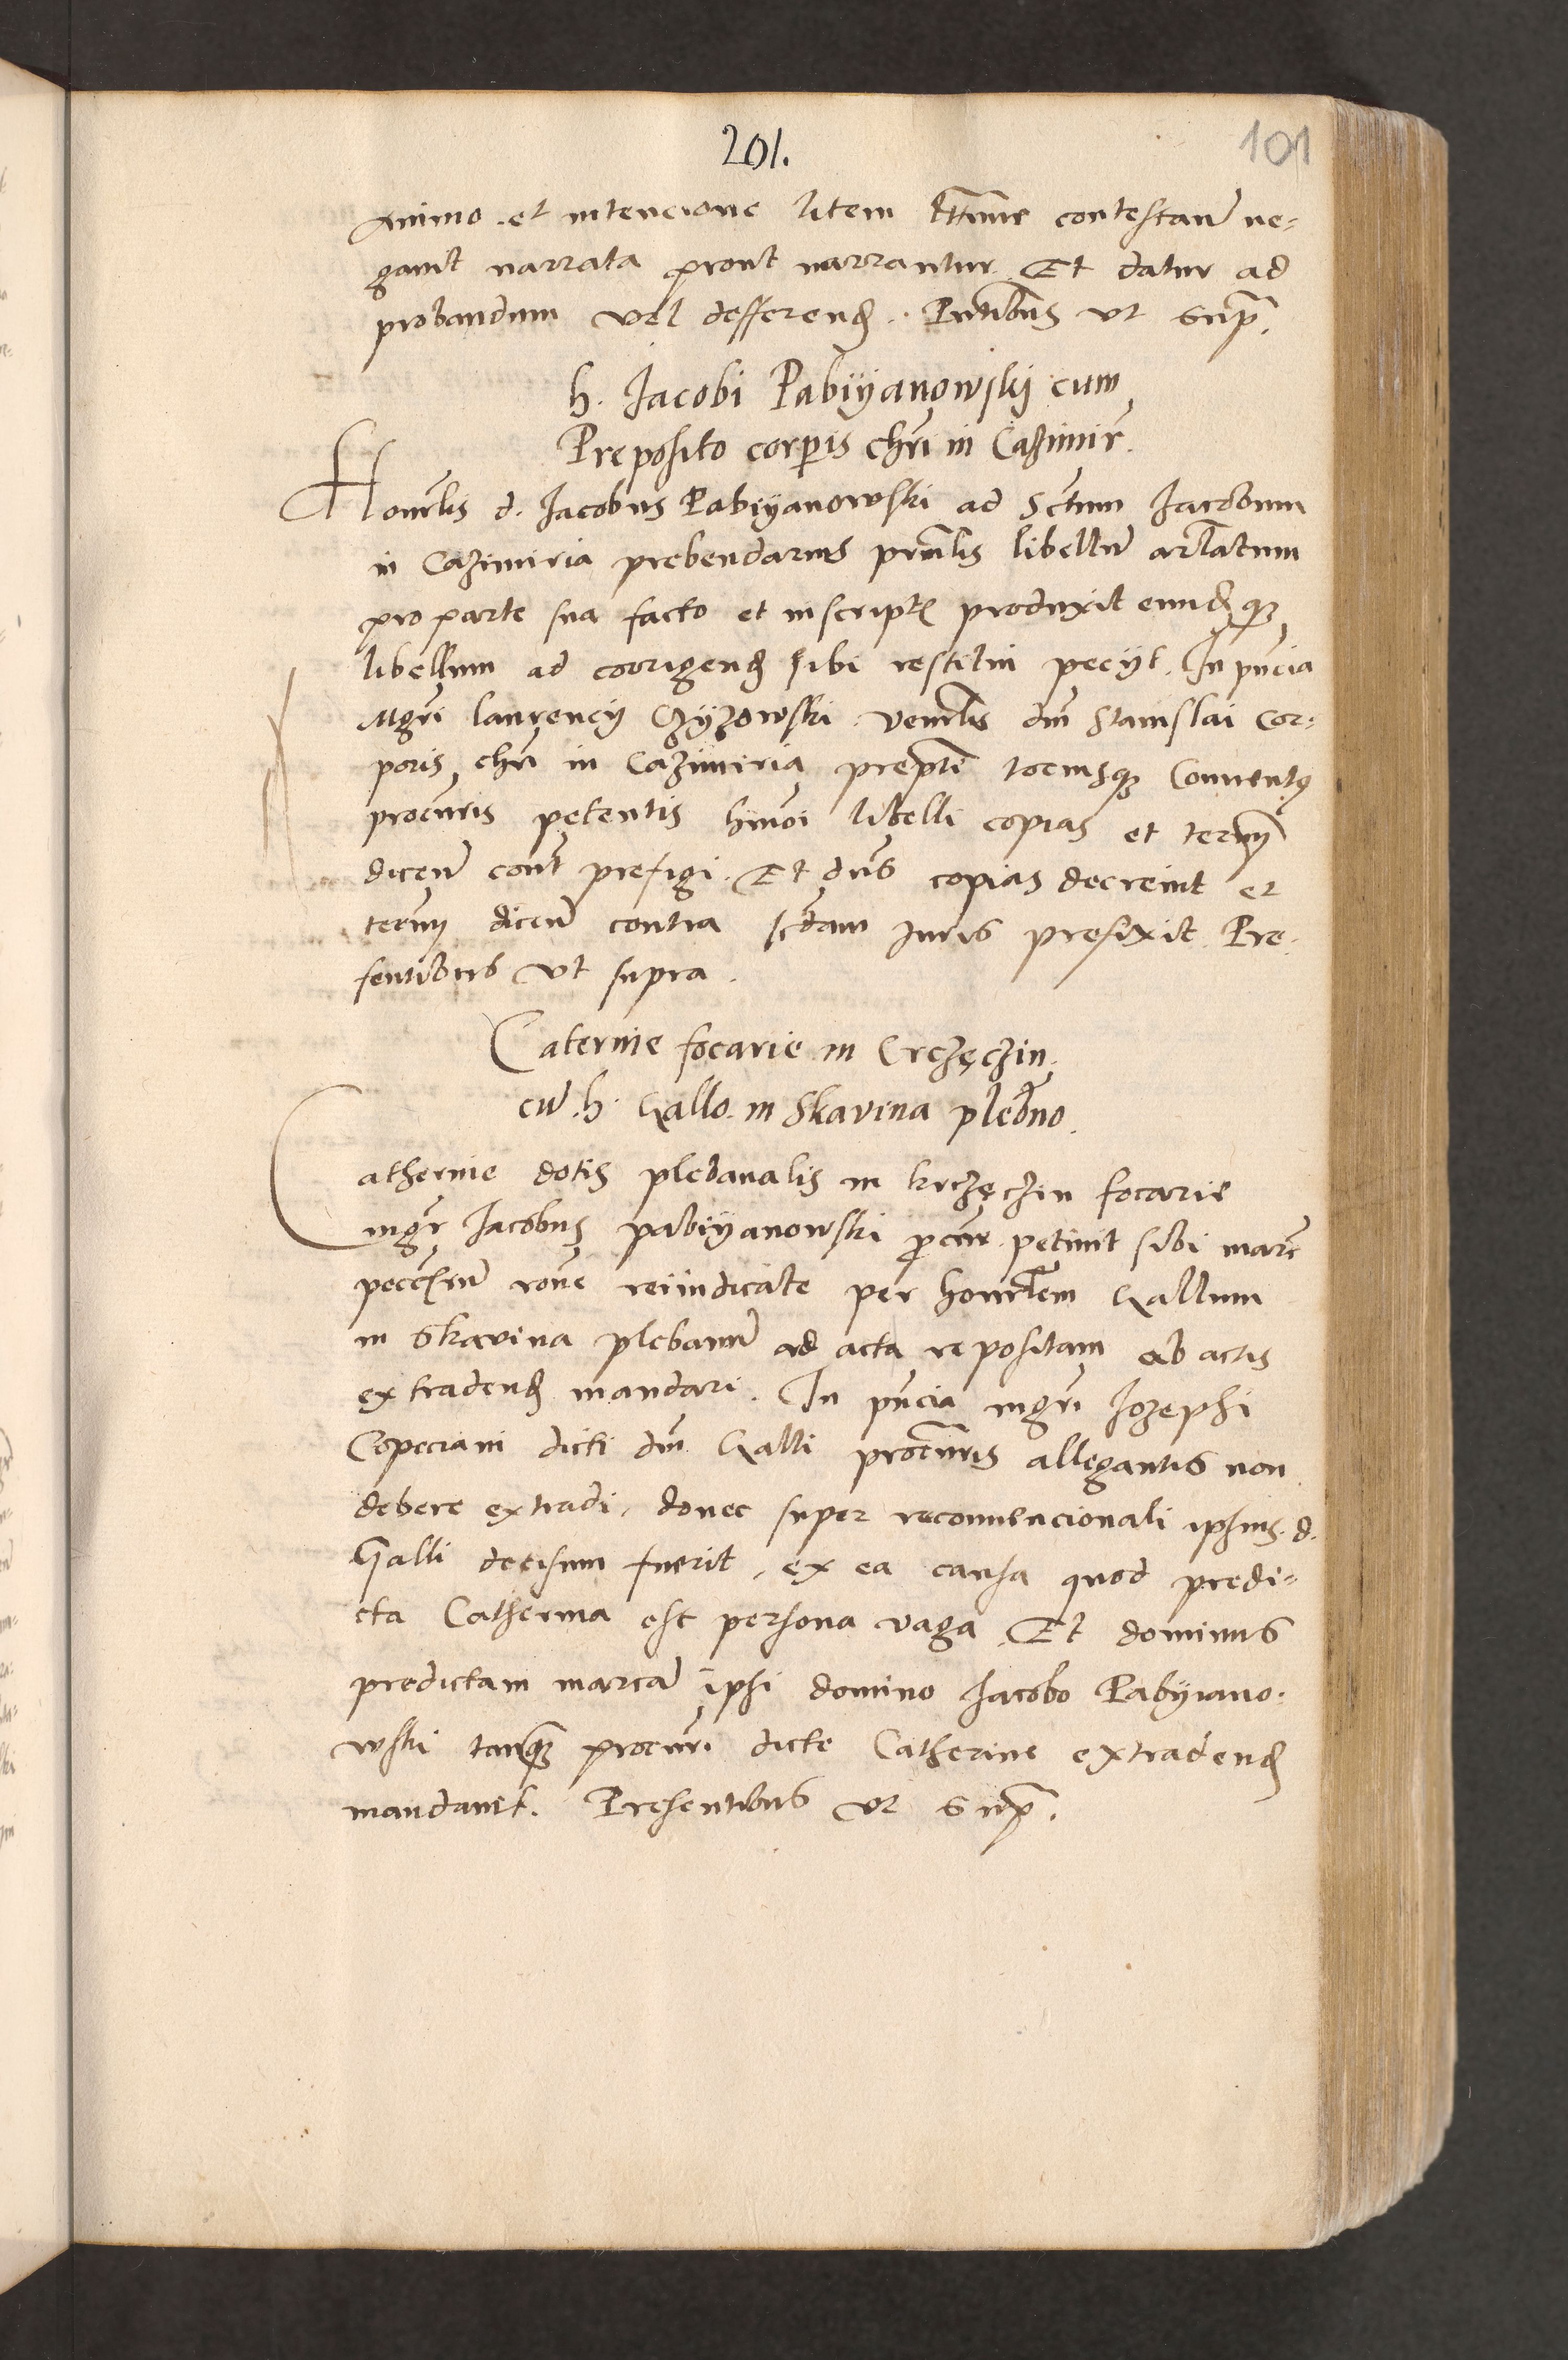 201.
101
animo et intencione litem contestan̄ ne-
gavit narrata prout narrantur. Et datur ad
probandum vel defferend. Pntibus ut supra.
h. Jacobi Pabiyanowskj cum
Preposito corpris chri in Cazimir̄.
Honorlis d. Jacobus Pabiyanowski ad Sctum Jacobum
in Cazimiria prebendarius prnalis libellum artlatum
pro parte sua facto et inscriptis produxit eundque
libellum ad corrigend sibi restitui peciyt. In pncia
Mgri laurencij Czyzowski venerlis dni Stanislai Cor-
poris chri in Cazimiria prepti tociusque Conventus
procuris petentis hmoi libelli copias et termin
dicen̄ cont̄ prefigi. Et dns copias decrevit et
termin dicen̄ contra scdam Juris prefixit. Pre-
sentibus ut supra.
Caterine focarie in Crczęczin
cum h. Gallo in Skavina plebno.
Catherine dotis plebanalis in krczęczin focarie
mgr Jacobus pabiyanowski procur petivit sibi marc
pecc[...] rone reiudicate per honorlem Gallum
in Skavina plebanum ad acta repositam ab actis
extradend mandari. In pncia mgri Jozephi
Copeciani dicti dni Galli procuris allegantis non
debere extradi, donec super reconvencionali ipsius d.
Galli decisum fuerit, ex ea causa quod predi-
cta Catherina est persona vaga. Et dominus
predictam marcam ipsi domino Jacobo Pabyiano-
wski tanque procuri dicte Catherine extradend
mandavit. Presentibus ut supra.